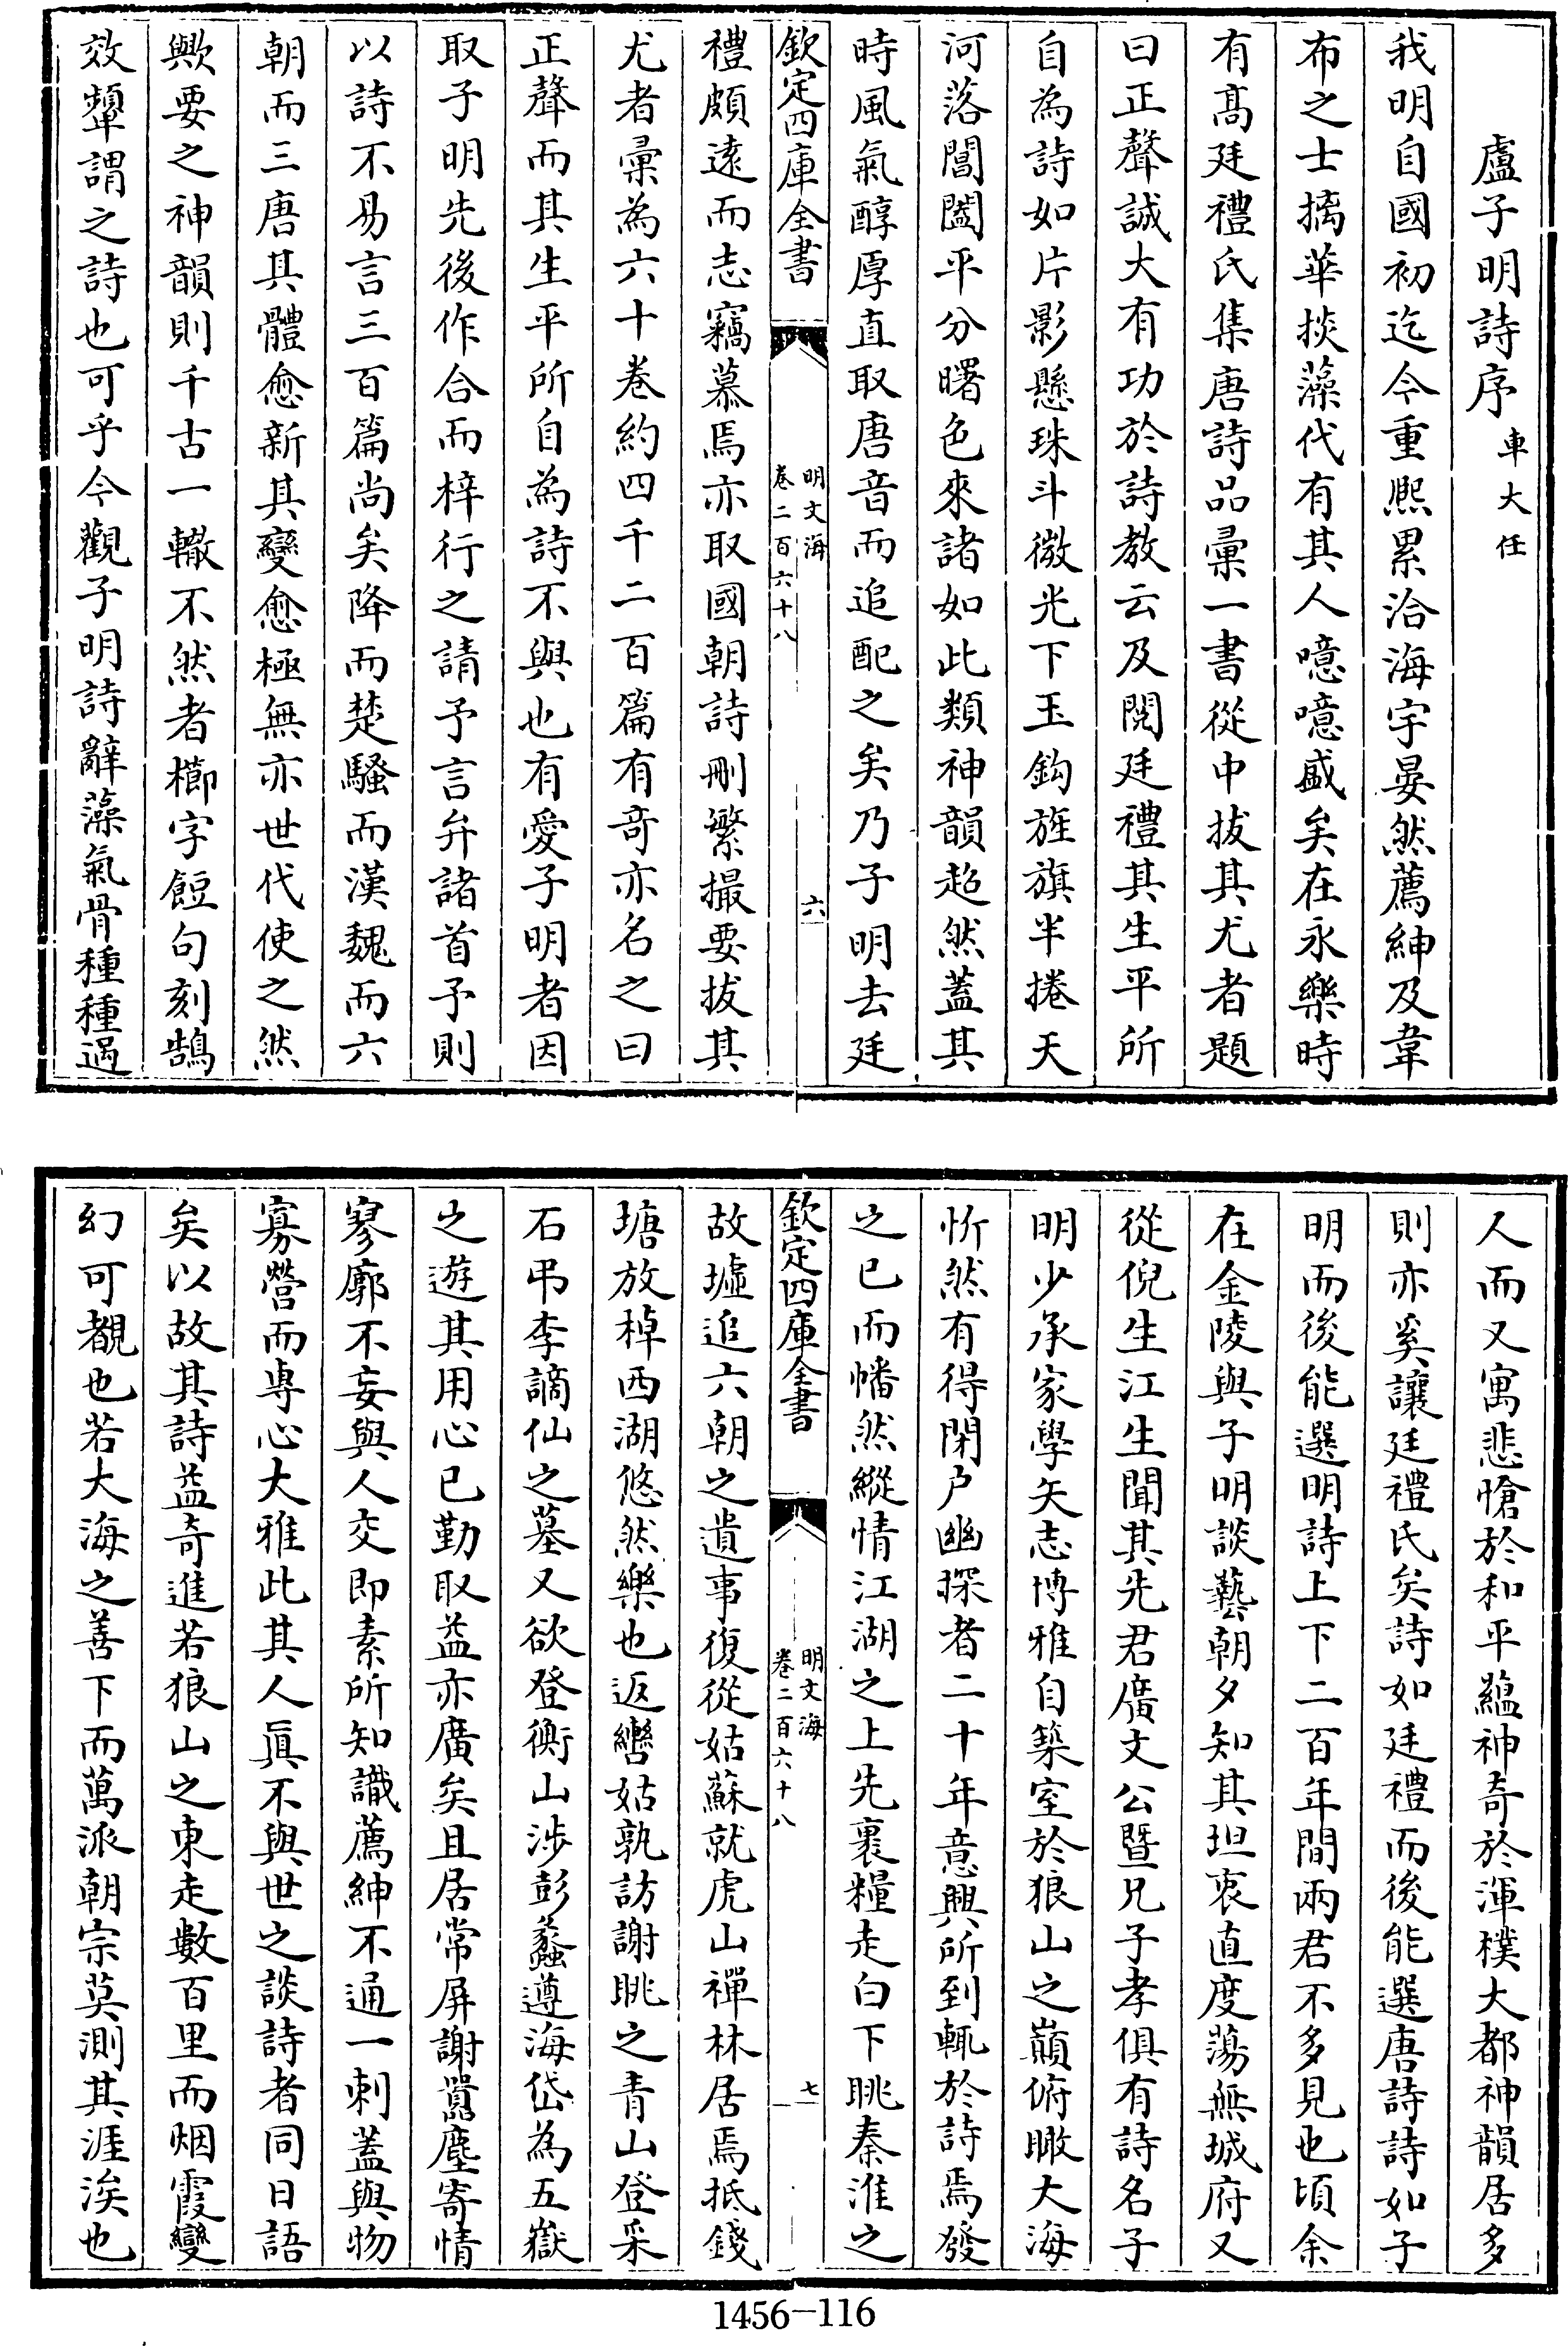 盧子明詩序車大任
我明自國初迄今重熈累洽海宇晏然薦紳及韋
布之士摛華掞藻代有其人噫噫盛矣在永樂時
有髙廷禮氏集唐詩品彚一書從中拔其尤者題
曰正聲誠大有功於詩教云及閱廷禮其生平所
自為詩如片影懸珠斗微光下玉鈎旌旗半捲天
河落閶闔平分曙色來諸如此類神韻超然蓋其
時風氣醇厚直取唐音而追配之矣乃子明去廷
欽定四庫全書
明文海
卷二百六十八
六
禮頗遠而志竊慕焉亦取國朝詩刪繁撮要拔其
尤者彚為六十卷約四千二百篇有奇亦名之曰
正聲而其生平所自為詩不與也有愛子明者因
取子明先後作合而梓行之請予言弁諸首予則
以詩不易言三百篇尚矣降而楚騷而漢魏而六
朝而三唐其體愈新其變愈極無亦世代使之然
歟要之神韻則千古一轍不然者櫛字餖句刻鵠
效顰謂之詩也可乎今觀子明詩辭藻氣骨種種過
人而又寓悲愴於和平蘊神奇於渾樸大都神韻居多
則亦奚讓廷禮氏矣詩如廷禮而後能選唐詩詩如子
明而後能選明詩上下二百年間兩君不多見也頃余
在金陵與子明談藝朝夕知其坦衷直度蕩無城府又
從倪生江生聞其先君廣文公暨兄子孝俱有詩名子
明少承家學矢志博雅自築室於狼山之巔俯瞰大海
忻然有得閉户幽探者二十年意興所到輒於詩焉發
之已而幡然縱情江湖之上先裹糧走白下眺秦淮之
欽定四庫全書
明文海
卷二百六十八
七
故墟追六朝之遺事復從姑蘇就虎山禪林居焉抵錢
塘放棹西湖悠然樂也返轡姑孰訪謝眺之青山登采
石弔李謫仙之墓又欲登衡山涉彭蠡遵海岱為五嶽
之遊其用心已勤取益亦廣矣且居常屏謝囂塵寄情
寥廓不妄與人交即素所知識薦紳不通一刺蓋與物
寡營而專心大雅此其人眞不與世之談詩者同日語
矣以故其詩益奇進若狼山之東走數百里而烟霞變
幻可覩也若大海之善下而萬派朝宗莫測其涯涘也
1456-116